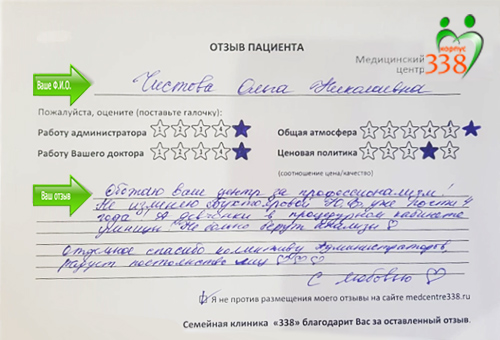 корпус
338
Медицинский
центр
ОТЗЫВ ПАЦИЕНТА
Ваше Ф.И.О.
Чистова Ольга Николаевна
Пожалуйста, оцените (поставьте галочку):
Работу администратора 1 2 3 4
Общая атмосфера 1 2 3 4
Работу Вашего доктора 1 2 3 4
Ценовая политика 1 2 3 5
(соотношение цена/качество)
Ваш отзыв
Обожаю Ваш центр за профессионализм!
Не изменяю Ю.В. уже почти 4
года! А девчонки в процедурном кабинете
умницы! Не больно берут анализы!
Отдельное спасибо коллективу администраторов,
радует постоянство лиц ♡♡♡
С любовью ♡
Я не против размещения моего отзыва на сайте medcentre338.ru
Семейная клиника «338» благодарит Вас за оставленный отзыв.